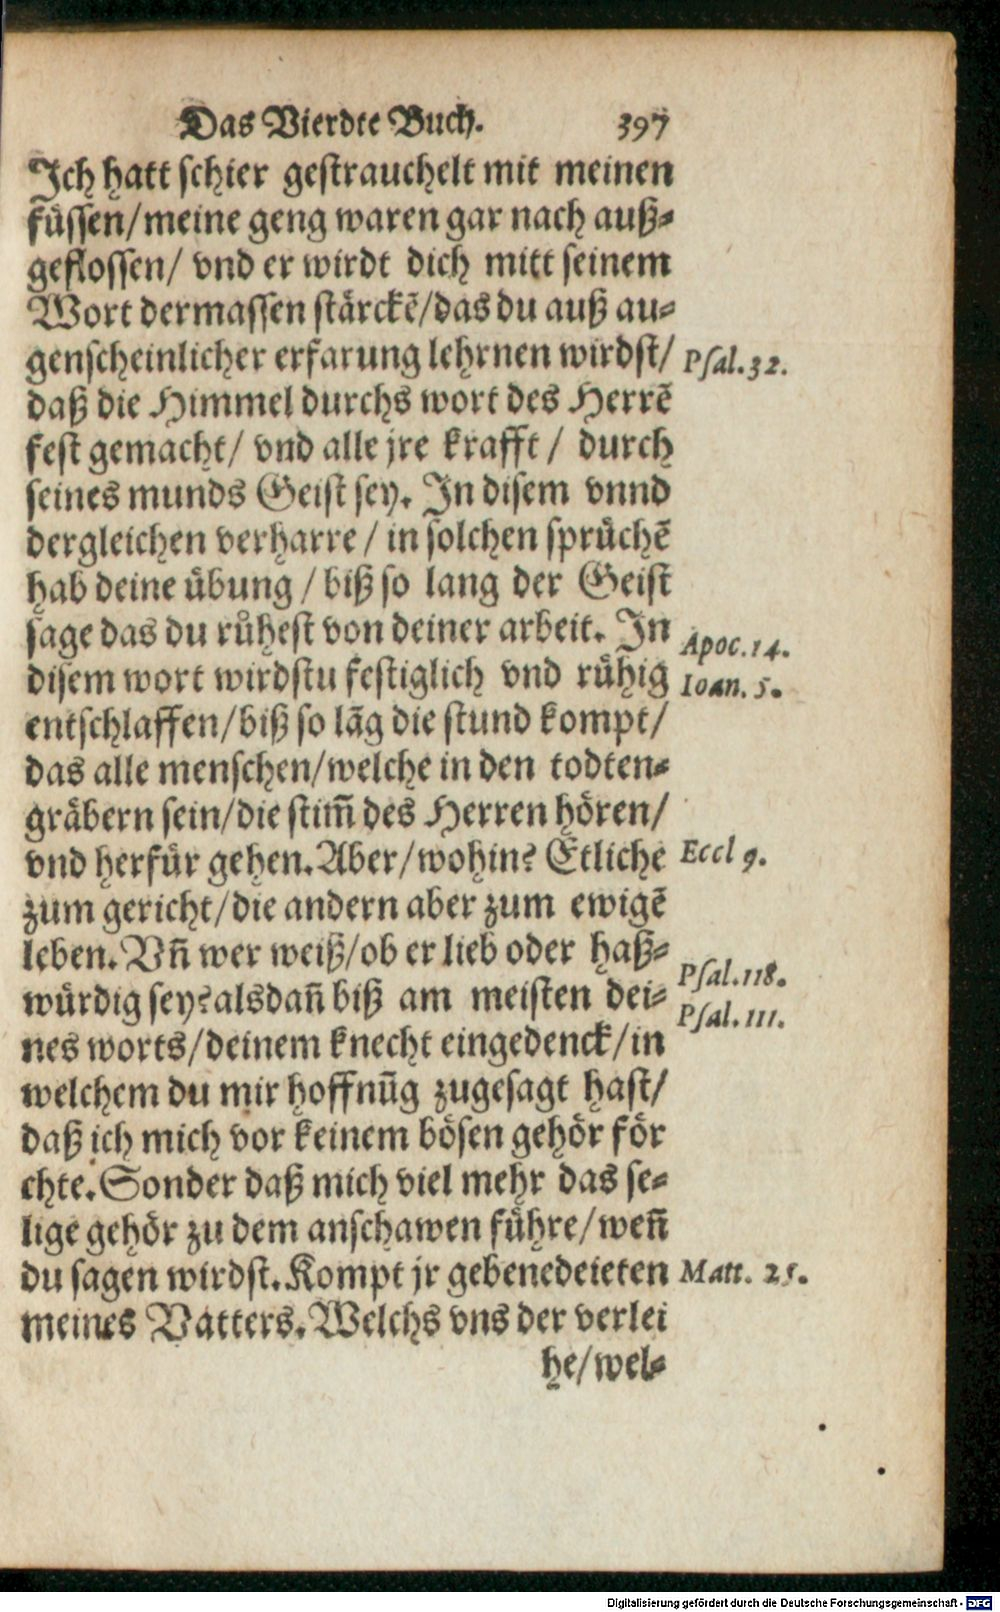 Das Vierdte Buch. 397
Ich hatt schier gestrauchelt mit meinen
füssen/meine geng waren gar nach auß-
geflossen/ vnd er wirdt dich mitt seinem
Wort dermassen stärckẽ/das du auß au-
genscheinlicher erfarung lehrnen wirdst/ Psal.32.
daß die Himmel durchs wort des Herrẽ
fest gemacht/ vnd alle jre krafft / durch
seines munds Geist sey. In disem vnnd
dergleichen verharre / in solchen sprüchẽ
hab deine übung / biß so lang der Geist
sage das du růhest von deiner arbeit. In Apoc.14.
disem wort wirdstu festiglich vnd růhig Ioan. 5.
entschlaffen/biß so lãg die stund kompt/
das alle menschen/welche in den todten-
gräbern sein/die stim̃ des Herren hören/
vnd herfür gehen. Aber/wohin? Etliche Eccl 9.
zum gericht/die andern aber zum ewigẽ
leben. Vñ wer weiß/ob er lieb oder haß-
würdig sey? alsdañ biß am meisten dei- Psal.118.
nes worts/deinem knecht eingedenck/in Psal.111.
welchem du mir hoffnũg zugesagt hast/
daß ich mich vor keinem bösen gehör för
chte. Sonder daß mich viel mehr das se-
lige gehör zu dem anschawen führe/weñ
du sagen wirdst. Kompt jr gebenedeieten Matt. 25.
meines Vatters. Welchs vns der verlei
he/wel-
Digitalisierung gefördert durch die Deutsche Forschungsgemeinschaft - DFG